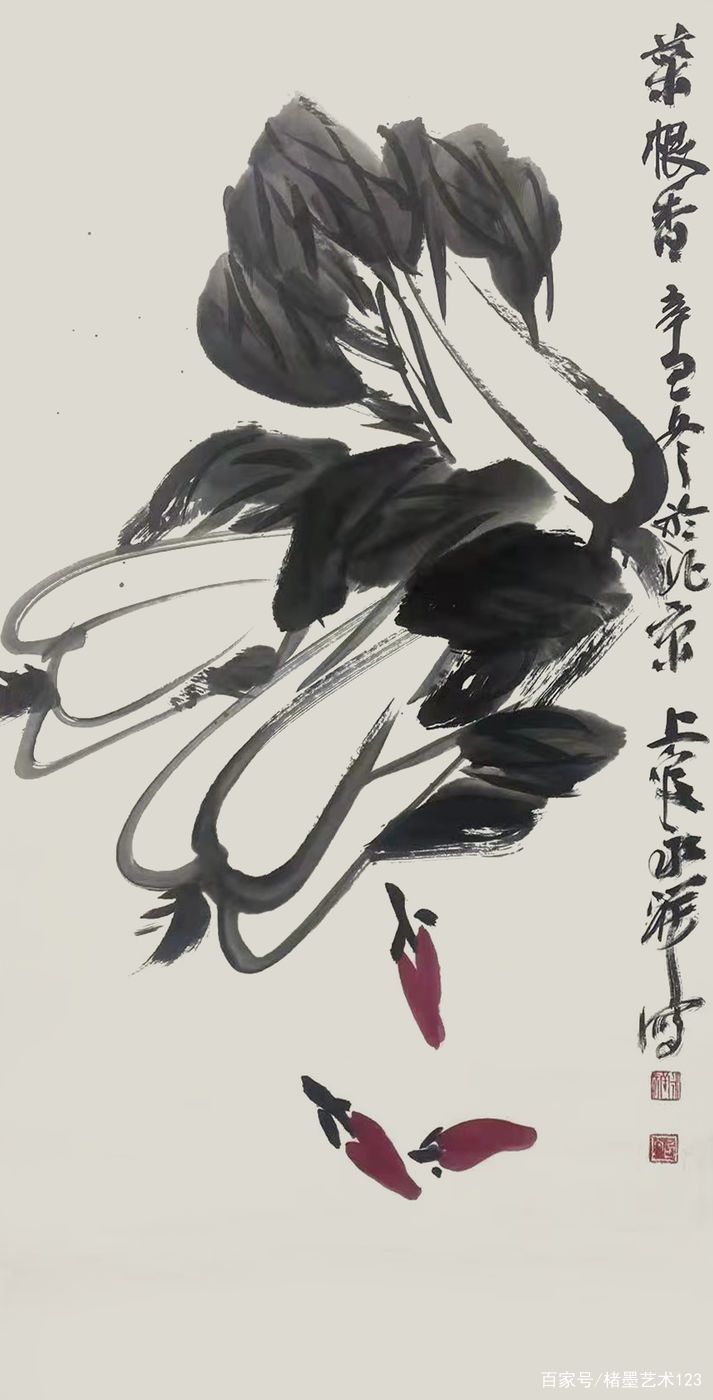 菜根香 辛丑冬於北京 上官永祥寫
百家号/楮墨艺术123